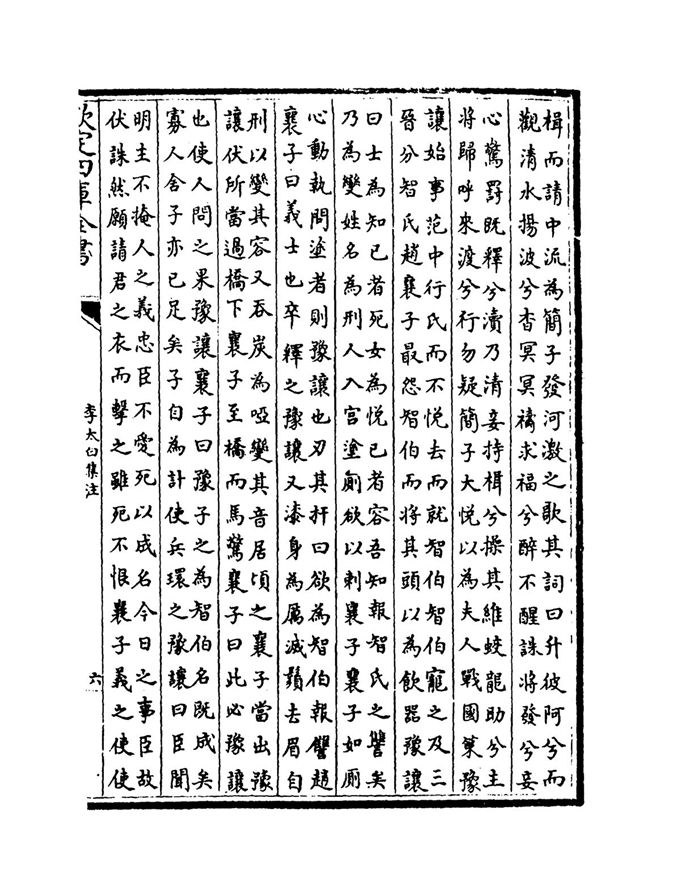 楫而請中流為簡子發河激之歌其詞曰升彼阿兮而
觀清水揚波兮杳冥冥禱求福兮醉不醒誅將發兮妾
心驚罰既釋兮瀆乃清妾持楫兮操其維蛟龍助兮主
將歸呼來渡兮行勿疑簡子大悅以為夫人戰國䇿豫
讓始事范中行氏而不悅去而就智伯智伯寵之及三
晉分智氏趙襄子最怨智伯而將其頭以為飲器豫讓
曰士為知已者死女為悅已者容吾知報智氏之讐矣
乃為變姓名為刑人入宫塗厠欲以刺襄子襄子如厠
心動執問塗者則豫讓也刃其扞曰欲為智伯報讐趙
襄子曰義士也卒釋之豫讓又漆身為厲滅鬚去眉自
刑以變其容又吞炭為啞變其音居頃之襄子當出豫
讓伏所當過橋下襄子至橋而馬驚襄子曰此必豫讓
也使人問之果豫讓襄子曰豫子之為智伯名既成矣
寡人舍子亦已足矣子自為計使兵環之豫讓曰臣聞
明主不掩人之義忠臣不愛死以成名今日之事臣故
伏誅然願請君之衣而擊之雖死不恨襄子義之使使
欽定四庫全書
李太白集注
六